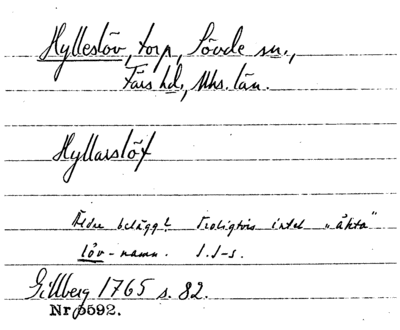 Hylleslöv, torp, Sövde sn.,
Färs hd., Mhs. län.
Hyllarslöf
Äldre belägg? Troligtvis intet "äkta"
löv-namn. I.I-s.
Gillberg 1765 s. 82.
Nr 5592.